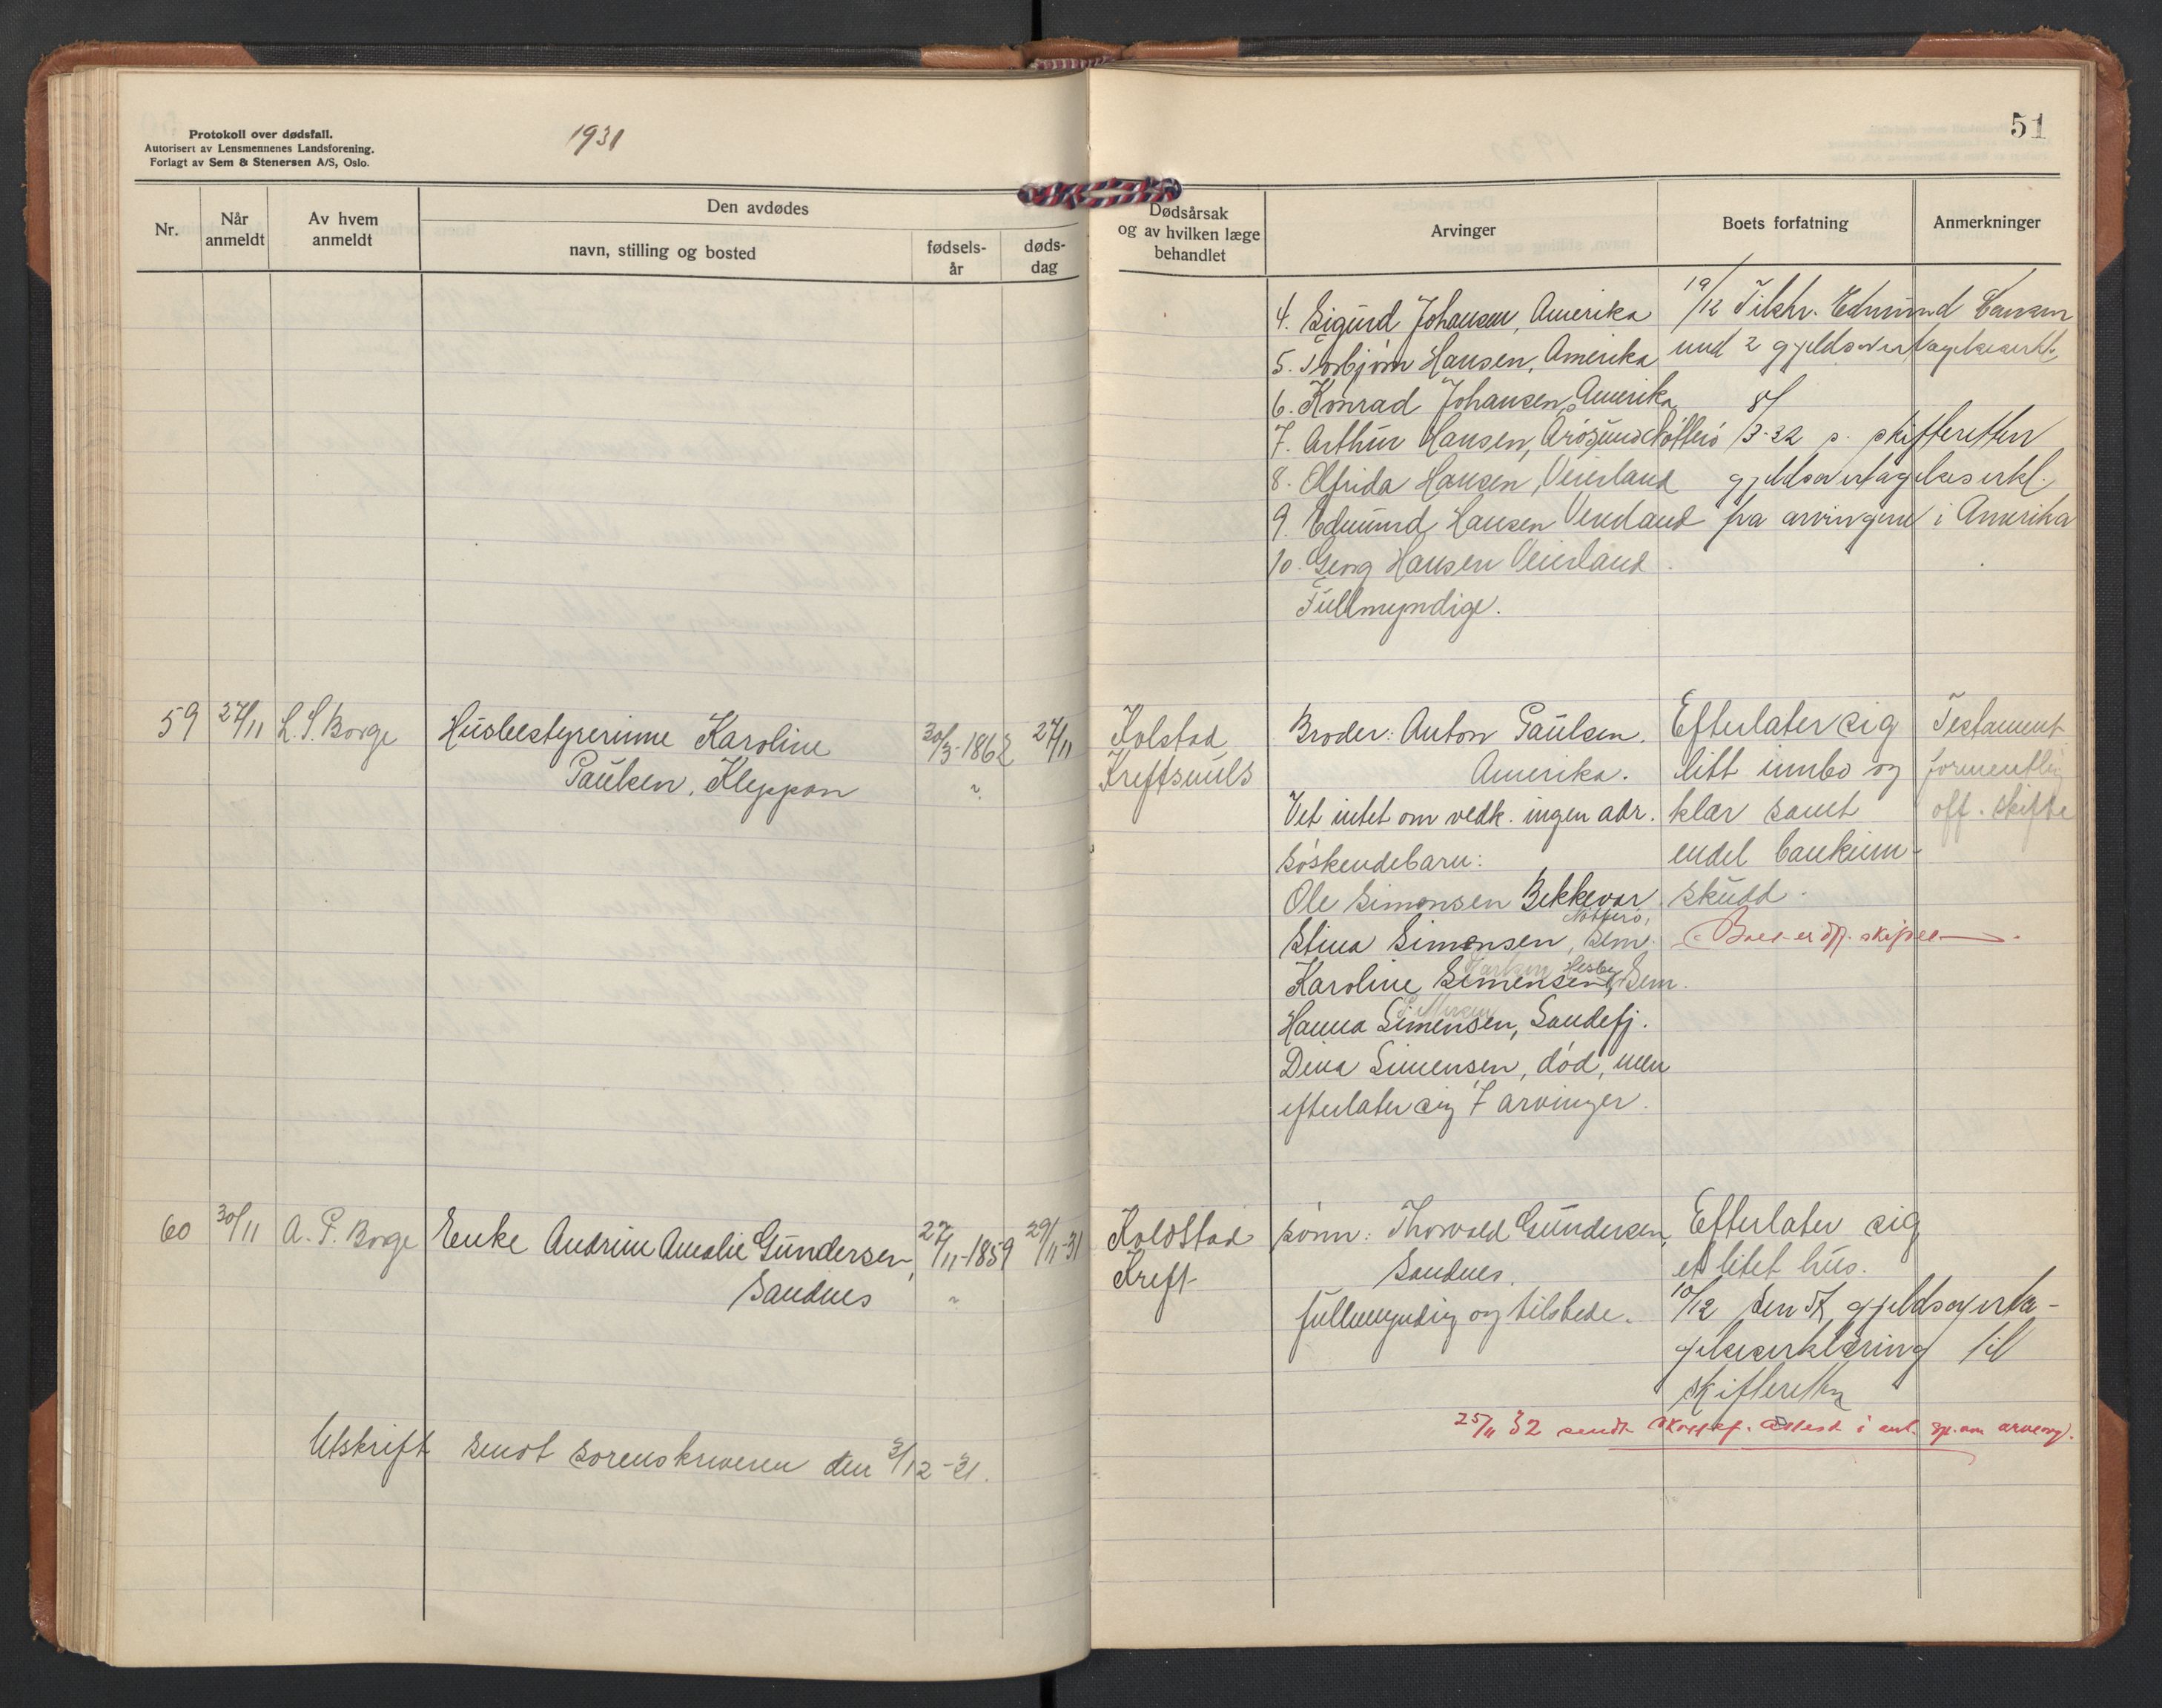 Protokoll over dødsfall.
Autorisert av Lensmennenes Landsforening.
Forlagt av Sem & Stenersen A/S, Oslo.
1931
51
Nr.
Når anmeldt
Av hvem anmeldt
Den avdødes
navn, stilling og bosted
fødsels-år
døds-dag
Dødsårsak og av hvilken læge behandlet
Arvinger
Boets forfatning
Anmerkninger
4. Sigurd Johansen, Amerika
5. Torbjørn Hansen, Amerika
6. Konrad Johansen, Amerika
7. Arthur Hansen, Årøsund Nøtterö
8. Alfrida Hansen, Veierland
9. Edmund Hansen Veierland
10. Georg Hansen Veierland
Fullmyndige.
19/12 Tilskr. Edmund Hansen
med 2 gjeldsovertagelseserkl.
8/3-32 s. skifteretten
gjeldsovertagelseserkl.
fra arvingene i Amerika
59 27/11 L. S. Borge
Husbestyrerinne Karoline
Paulsen, Kleppan
30/3-1862
27/11
Kolstad
Kreftsvuls
Broder: Anton Paulsen.
Amerika.
Vet intet om vedk. ingen adr.
Søskendebarn:
Ole Simonsen Bekkevar
Nøtterö,
Stina Simonsen, Sem.
Hesby
Karoline Simensen, Sem.
Hanna Simensen, Sandefj.
Dina Simensen, død, men
efterlater sig 7 arvinger.
Efterlater sig
litt innbo og
klær samt
endel bankinn-
skudd.
Boet er off. skifte
Testament
formentlig
off. skifte
60 30/11 A. P. Borge
Enke Andrine Amalie Gundersen,
Sandnes
27/11-1859
29/11-31
Koldstad
Kreft
sønn: Thorvald Gundersen,
Sandnes.
fullmyndig og tilstede.
Efterlater sig
et litet hus.
10/12 sendt gjeldsoverta-
gelseserklæring til
skifteretten
25/11 32 sendt attest i anl. om arveavg.
Utskrift sendt sorenskriveren den 3/12-31.